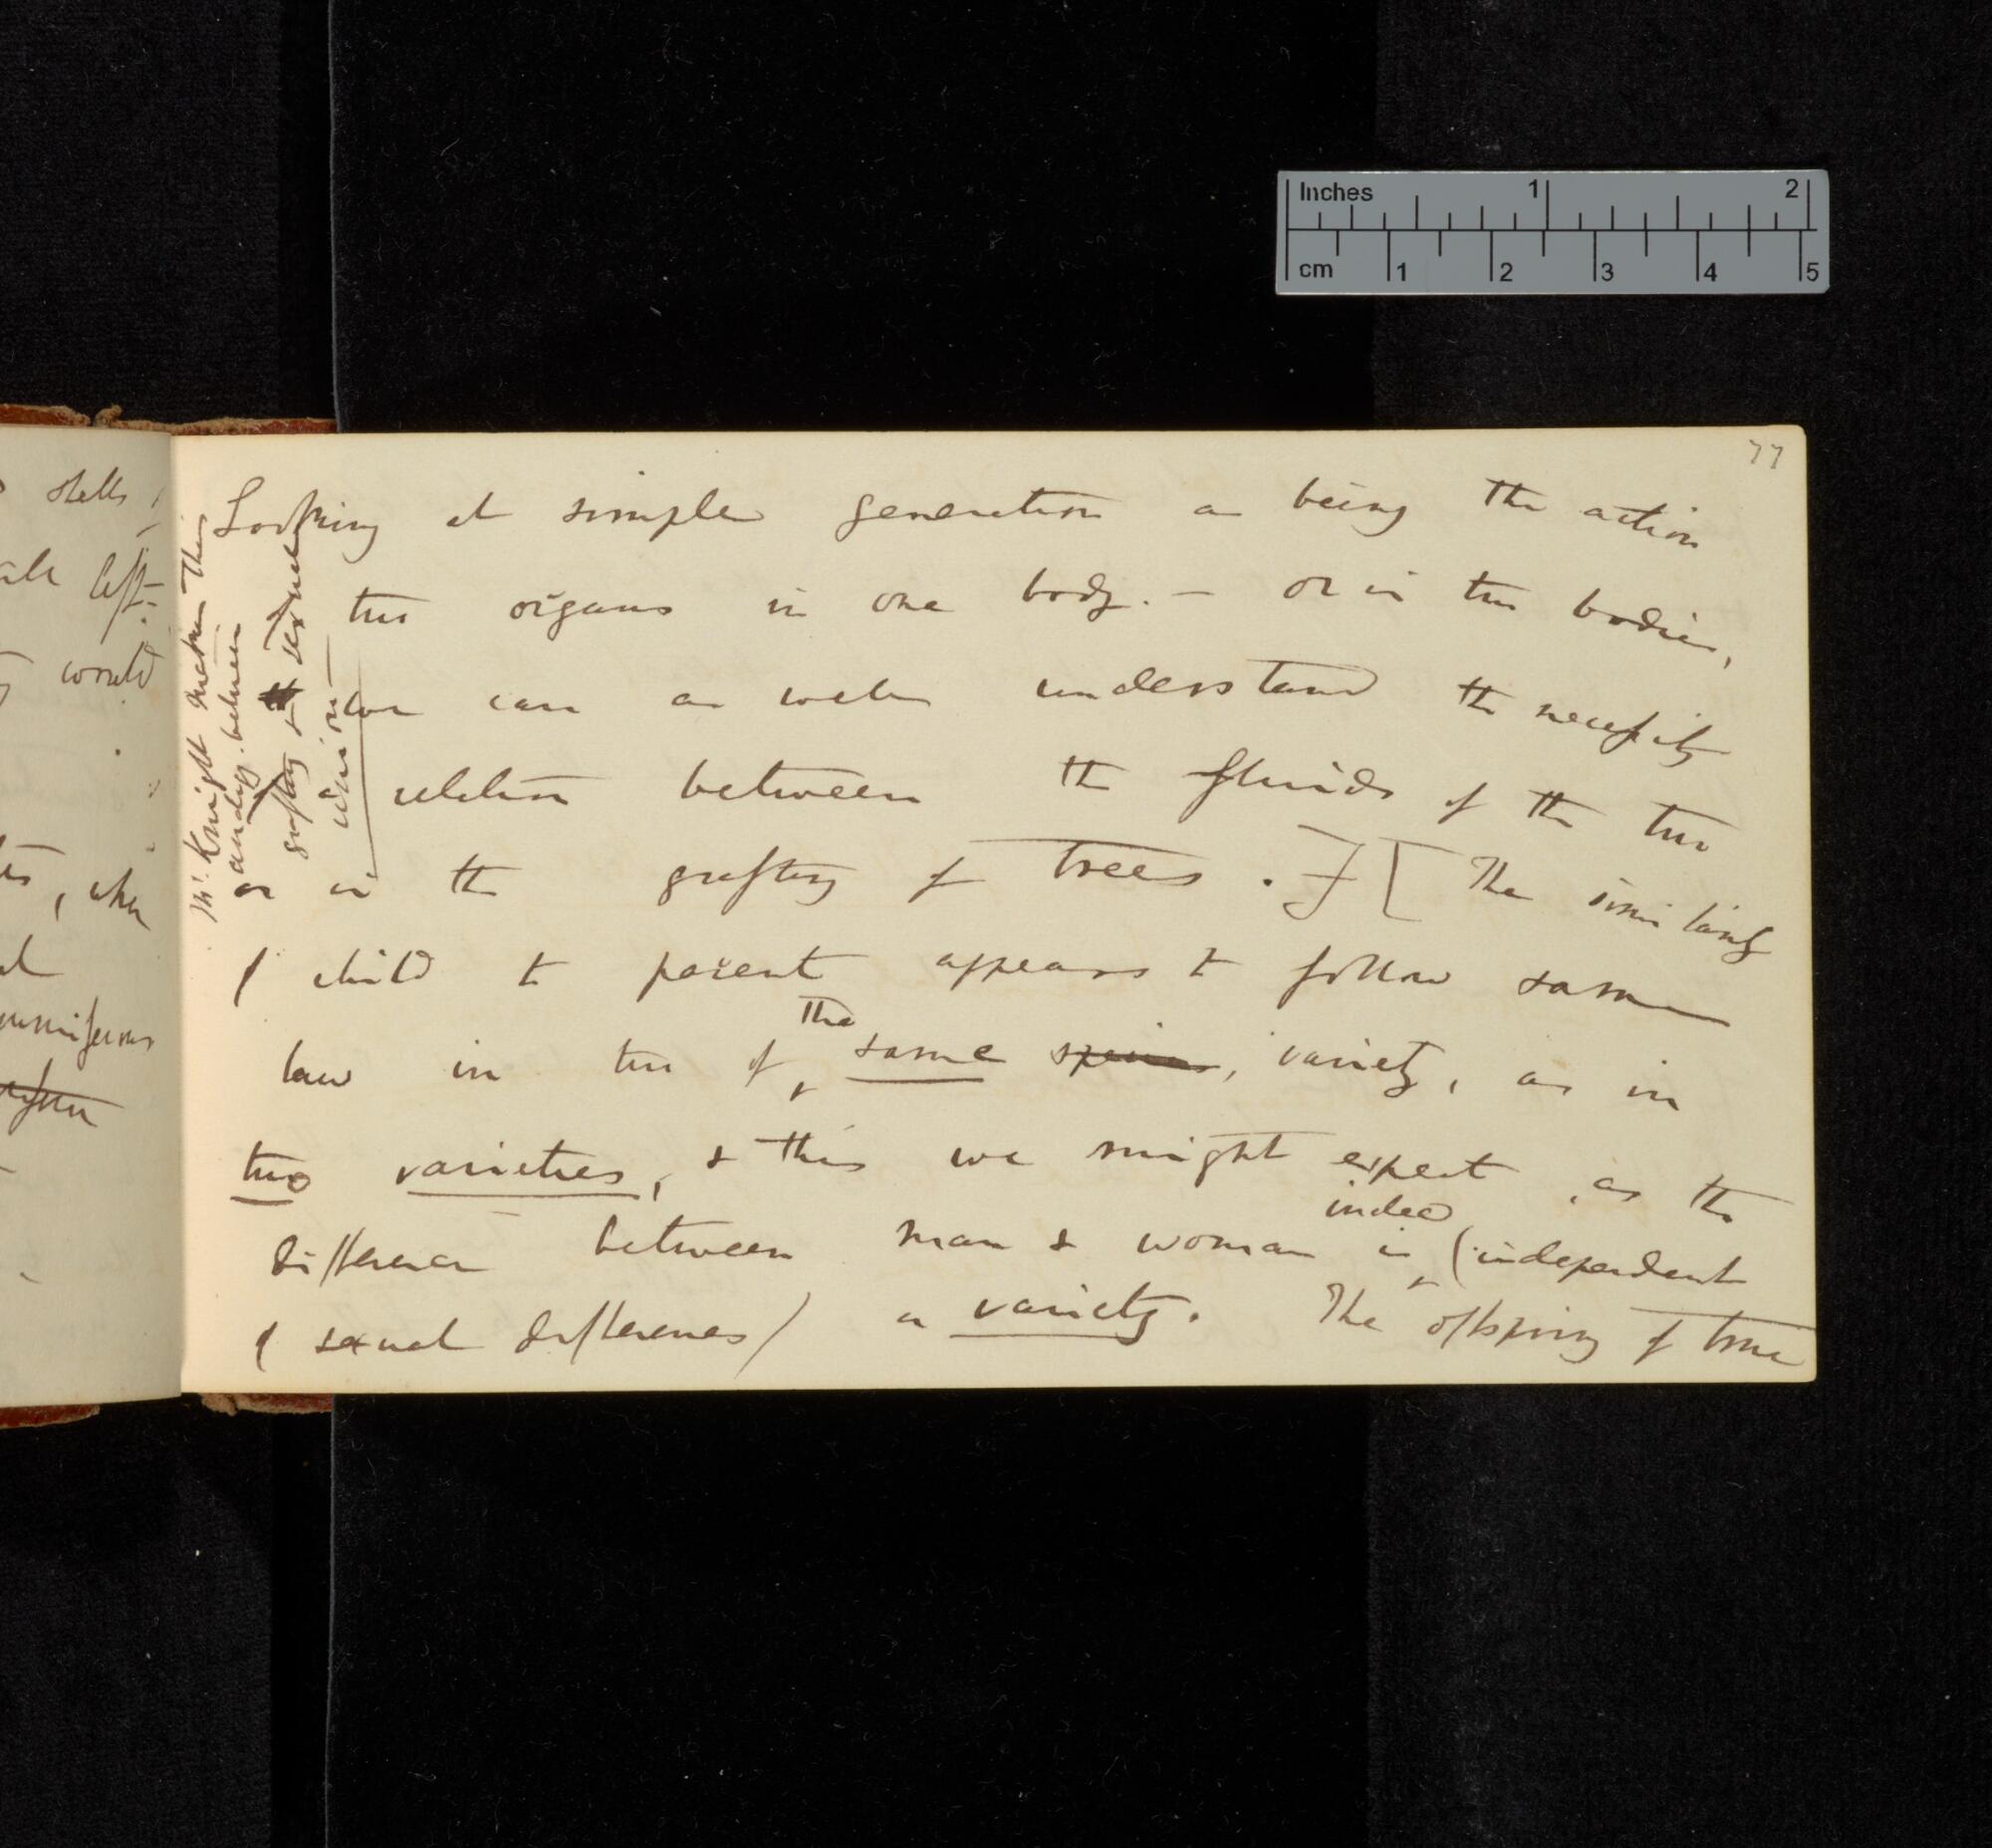 Inches 1 2
cm 1 2 3 4 5
77
Looking at simple generation as being the action
two organs in one body. — or in two bodies,
we can as well understand the necessity
relation between the fluids of the two
as in the grafting of trees.] [The similarity
of child to parent appears to follow same
law in two of the same species, variety, as in
two varieties, & this we might expect, as the
difference between man & woman is indeed (independent
of sexual differences) a variety. The offspring of true
Mr. Knight makes this
analogy between
grafting & sexual
union
shells
left
would
, when